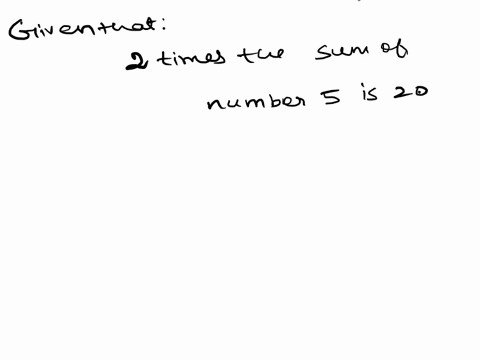 Given that:
2 times the sum of
number 5 is 20